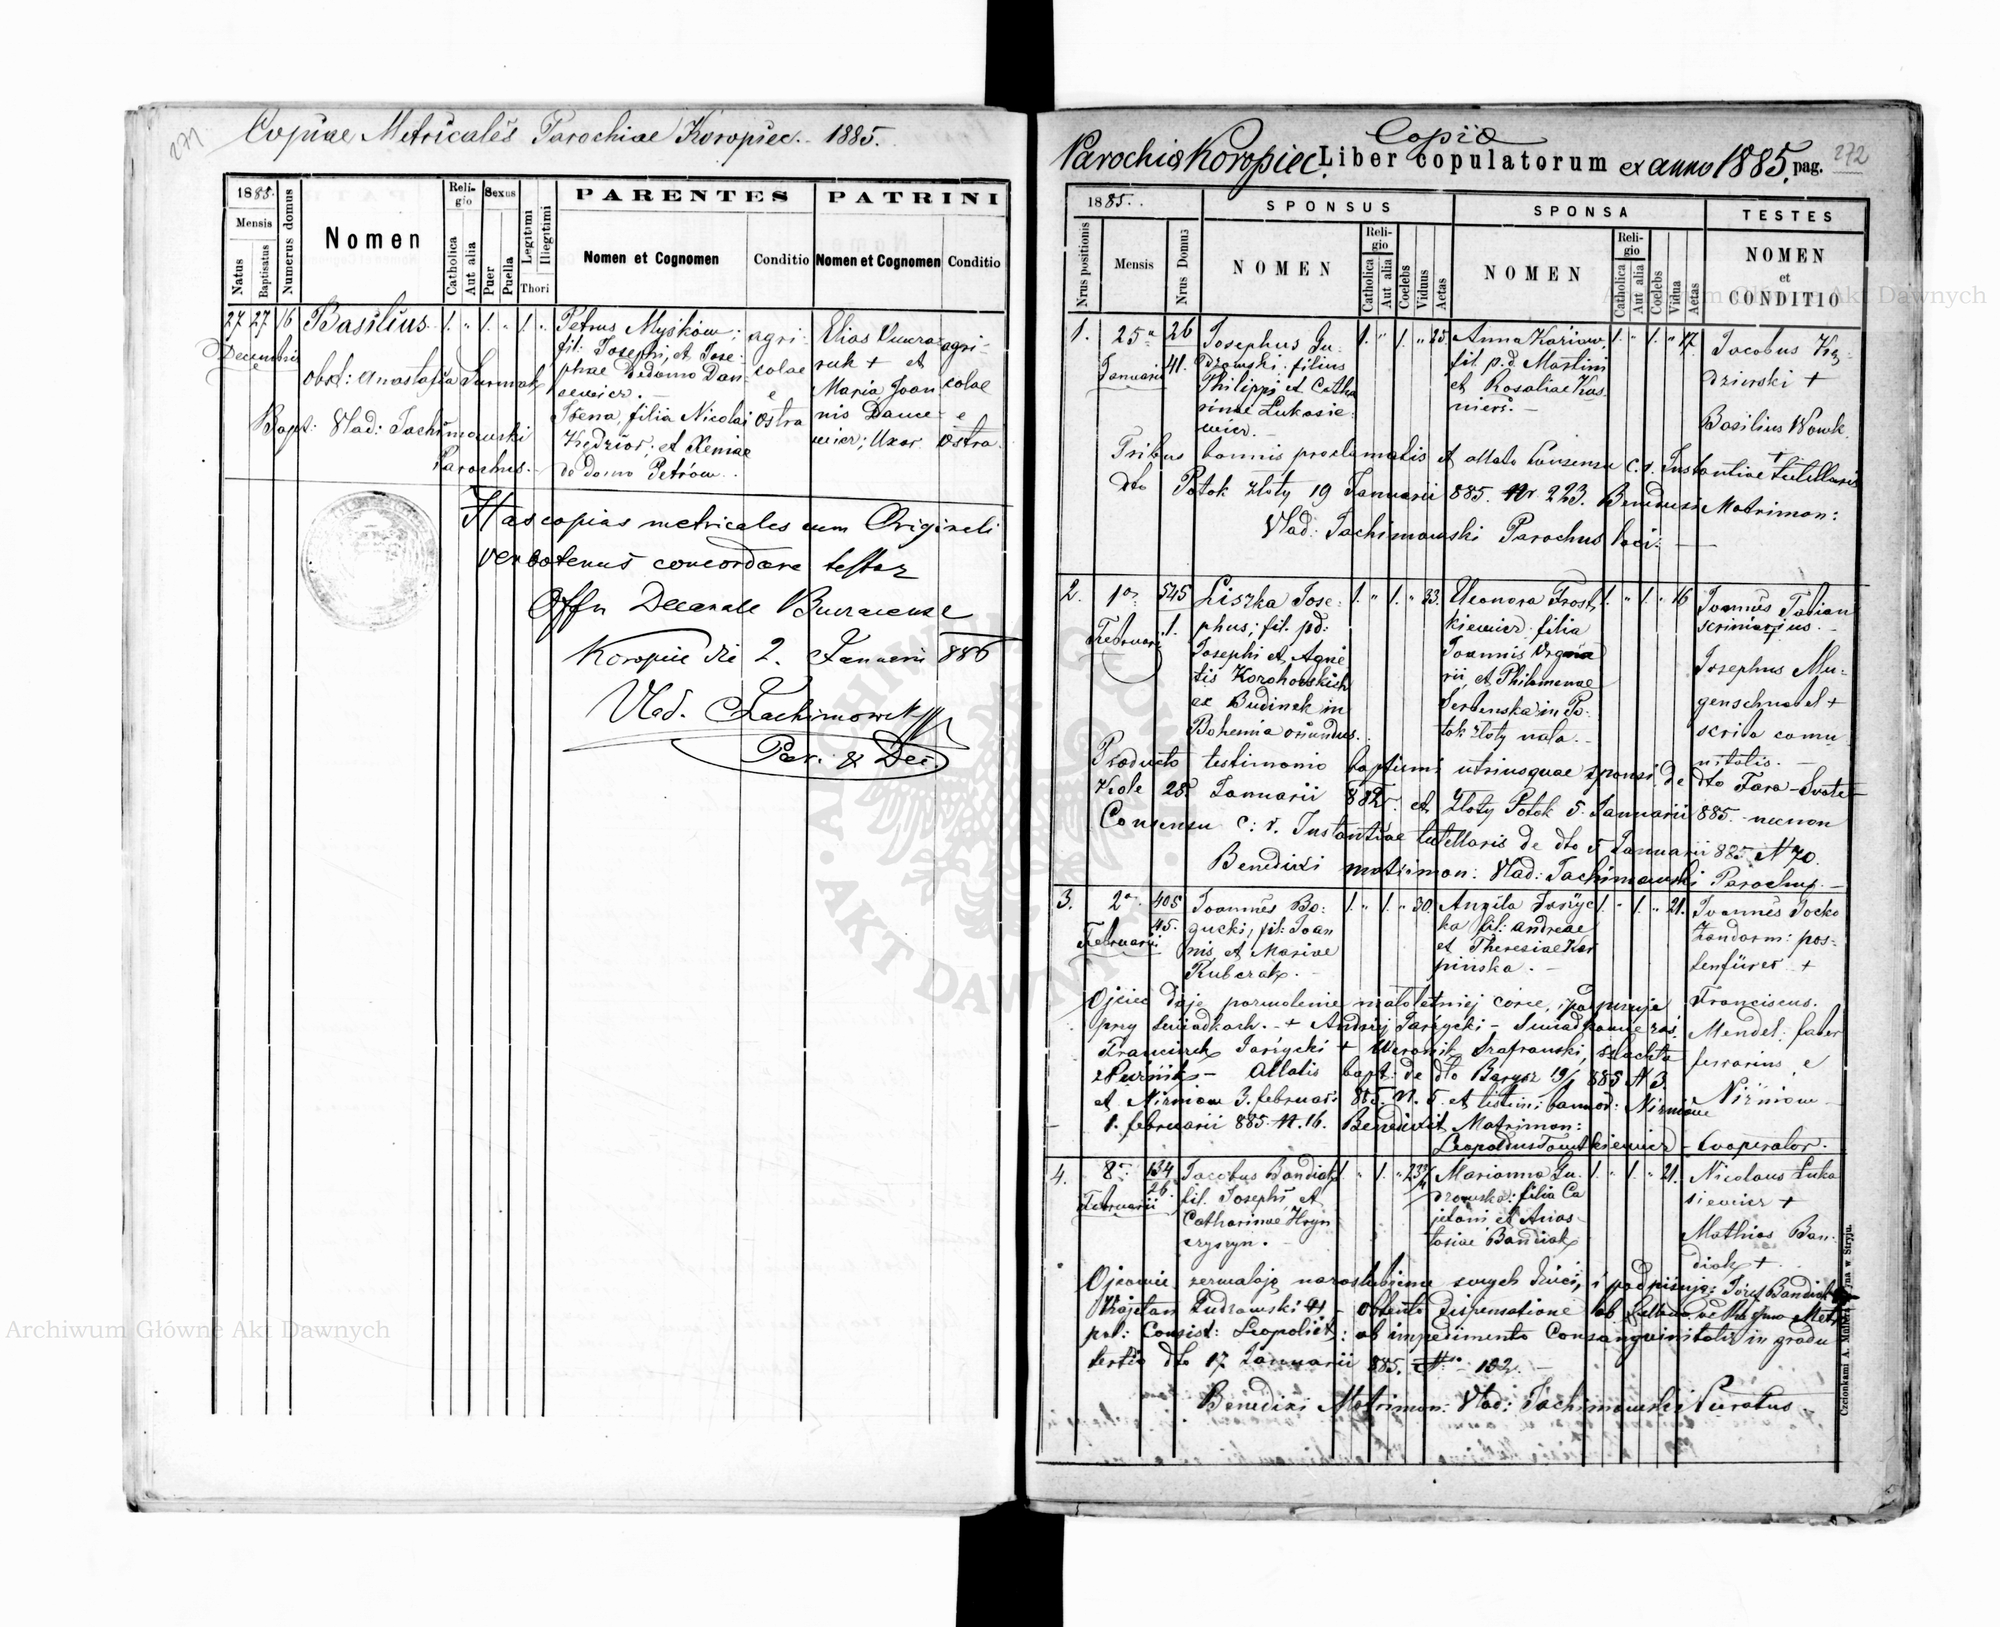 271
Copiae Metricales Parochiae Koropiec. 1885.
1885.
Mensis
Natus
Baptisatus
Numerus domus
Nomen
Religio
Catholica
Aut alia
Sexus
Puer
Puella
Legitimi
Illegitimi
Thori
PARENTES
Nomen et Cognomen
Conditio
PATRINI
Nomen et Cognomen
Conditio
27 27 16 Basilius. 1. " 1. " 1. "
Decembris
obst: Anastasia
Bapt: Vlad: Tachimowski
Parochus.
Petrus Myśków;
fil: Josephi, et Jose-
phae de domo Dan-
cewicz.
Irena, filia Nicolai
Kędzior, et Xeniae
de domo Petrów.
agri-
colae
e
Ostra
Elias
+ et
Maria Joan-
nis Dance-
wicz; Uxor
agri-
colae
e
Ostra.
Has copias metricales cum Originali
verbotenus concordare testor
Offm Decanale Buczacense
Koropiec die 2. Januarii 886
Vlad. Tachimowski
Par. & Dec.
Copia
Parochia Koropiec. Liber copulatorum ex anno 1885. pag. 272
1885.
Nrus positionis
Mensis
Nrus Domus
SPONSUS
NOMEN
Religio
Catholica
Aut alia
Coelebs
Viduus
Aetas
SPONSA
NOMEN
Religio
Catholica
Aut alia
Coelebs
Vidua
Aetas
TESTES
NOMEN
et
CONDITIO
1. 25a 26
Januarii 41.
Josephus Gu-
drowski filius
Philippi et Catha-
rinae Łukasie-
wicz.
1. " 1. " 25.
Anna
fil. p.d. Martini
et Rosaliae Kus-
nierz.
1. " 1. " 17.
Jacobus Kę-
dzierski +
Basilius Wowk
+
Tribus bannis proclamatis et allato Consensu c. r. Instantiae tutellaris
dto Potok złoty 19 Januarii 885. Nr. 223. Benedixi Matrimon:
Vlad: Tachimowski Parochus loci.
2. 1a 545
Februarii 1.
Liszka Jose-
phus; fil. pd:
Josephi et Agne-
tis
ex Budinek in
Bohemia oriundus.
1. " 1. " 33.
Eleonora
kiewicz filia
Joannis
et Philomenae
in Po-
tok złoty nata.
1. " 1. " 16
Joannes Fabian
scriniarius.
Josephus Mu-
genschnabel +
scriba comu-
nitatis.
Producto testimonio baptismi utriusquae sponsi, de dto Fara
28. Januarii 882. et Złoty Potok 5 Januarii 885. necnon
Consensu c: r. Instantiae tutellaris de dto 5 Januarii 885 N 70.
Benedixi matrimon: Vlad: Tachimowski Parochus.
3. 2a 405
Februarii 45.
Joannes Bo-
gucki, fil: Joan-
nis, et Mariae
Kubczak.
1. " 1. " 30.
Angela Jarzyc-
ka fil: Andreae
et Theresiae Kar-
pińska.
1. " 1. " 21.
Joannes Jocko
Zandarm: pos-
tenfürer +
Franciscus.
Mendel: faber
ferrarius, e
Niżniow
Ojciec daje pozwolenie małoletniej córce, i podpisuje
przy świadkach. + Andrzej Jarzycki - Świadkowie zaś
Franciszek Jarzycki + Weronik Szafranski, szlachta
Allatis bapt: de dto Barysz 19/1 885 N 3.
et Nizniow 3. februari 885. N. 5. et testim: bannor: Nizniow
1. februarii 885. N. 16. Benedixit Matrimon:
Leopoldus - Cooperator.
4. 8a 134
Februarii 26.
Jacobus Bandiak
fil. Josephi et
Catharinae Hryn-
czyszyn.
1. " 1. "
Marianna Gu-
drowska: filia Ca-
jetani et Anas-
tasiae Bandiak
1. " 1. " 21.
Nicolaus Łuka-
siewicz +
Mathias Ban-
diak +
Ojcowie zezwalają na zaślubienie swych dzieci, i podpisują: Józef Bandiak
Kajetan Gudrowski - obtenta dispensatione ab
pol: Consist: Leopoliens: ab impedimento Consanguinitatis in gradu
tertio dto 17 Januarii 885. Nro 102.
Benedixi Matrimon: Vlad: Tachimowski Curatus
Czcionkami A. Müllera w Stryju.
ARCHIWUM GŁÓWNE AKT DAWNYCH
Archiwum Główne Akt Dawnych
Archiwum Główne Akt Dawnych